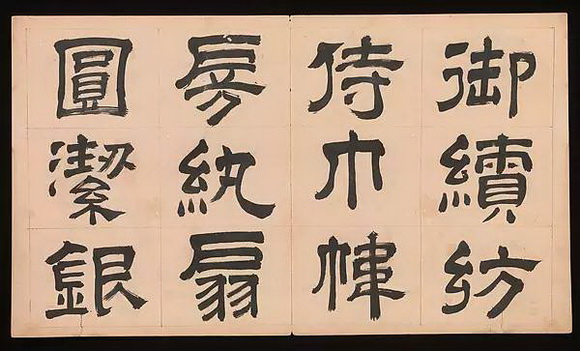 御續紡
侍巾幃
房紈扇
圓潔銀